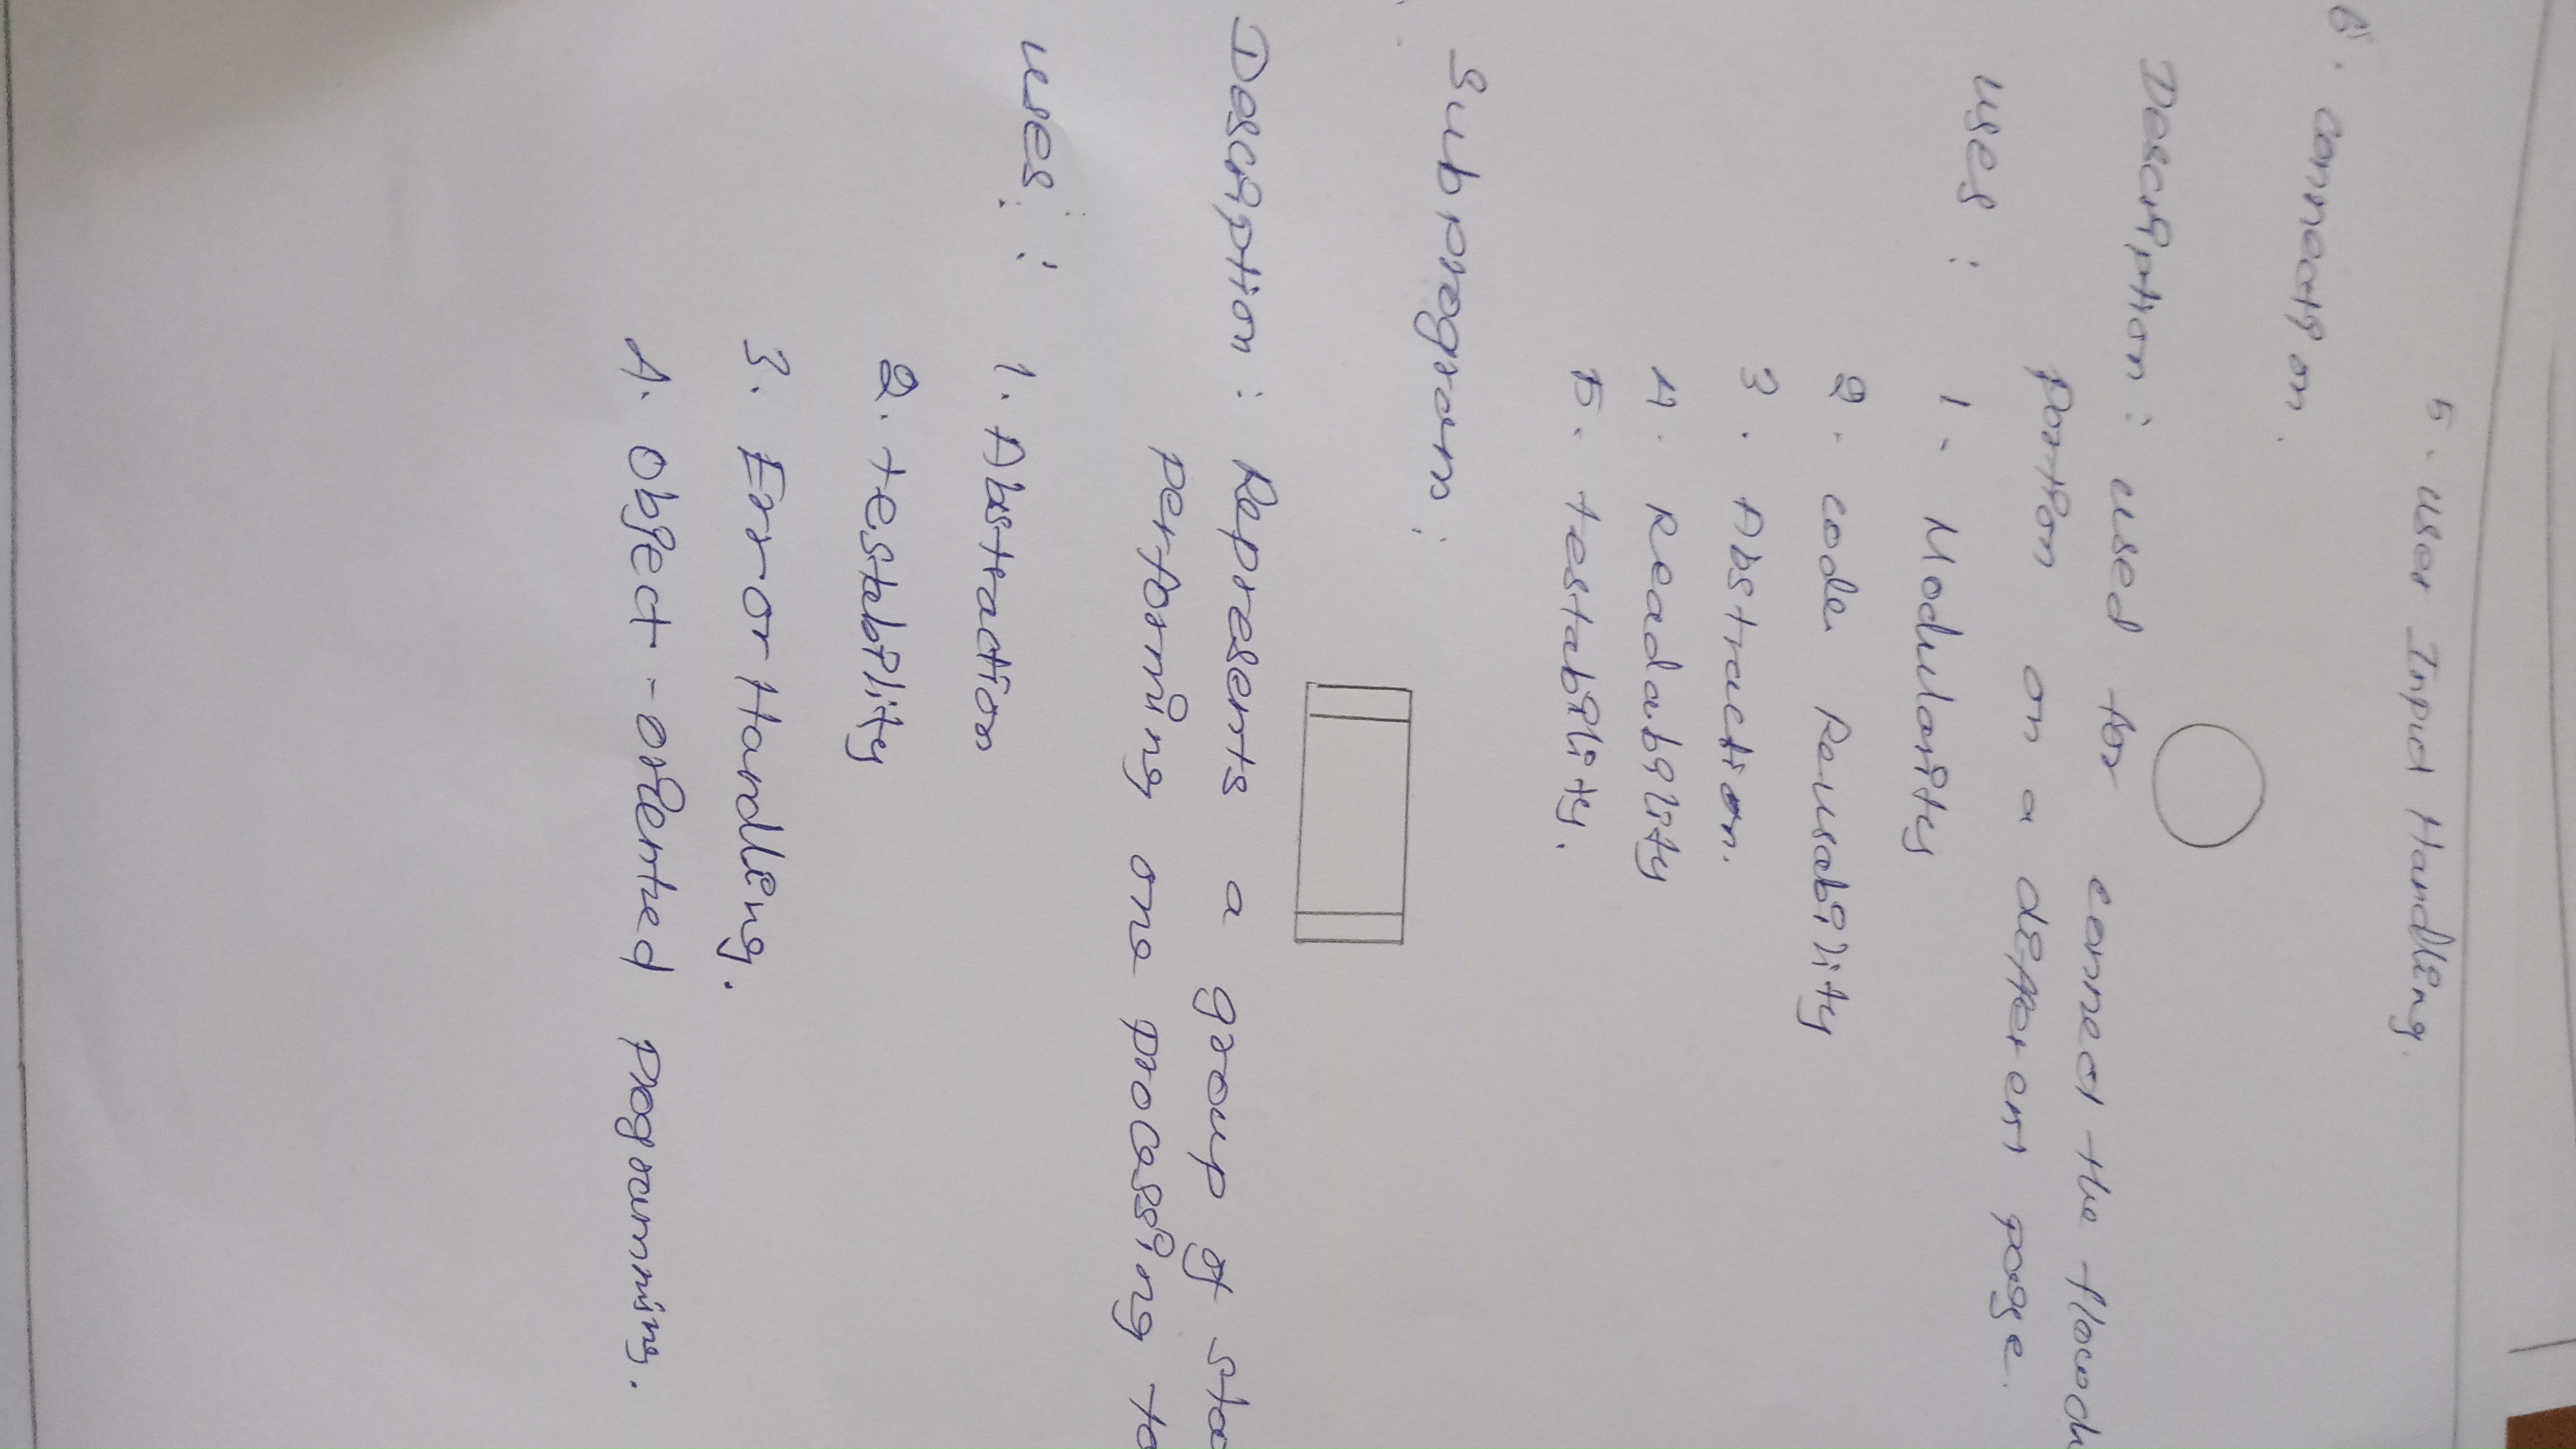 5. User Input Handling.
6. connection.
Description: used for connect the flowch
portion on a different page.
uses: 1. Modularity
2. code Reusability
3. Abstraction.
4. Readability
5. testability.
Subprogram:
Description: Represents a group of sta
performing one processing ta
uses: 1. Abstraction
2. testability
3. Error Handling.
4. Object-oriented programming.